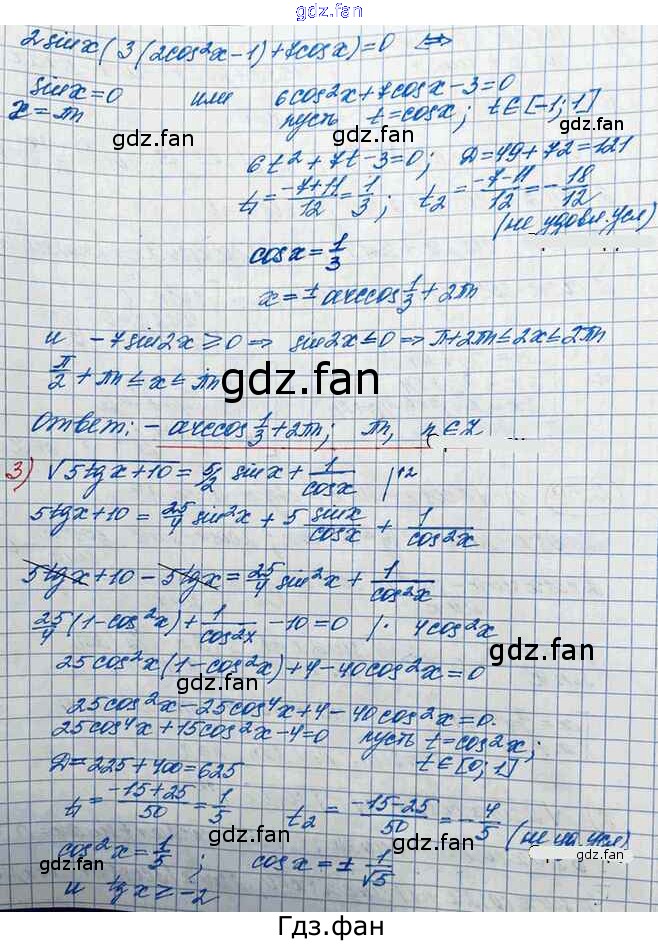 gdz.fan
2sinx(3(2cos²x-1)+7cosx)=0 ⇔
sinx=0 или 6cos²x+7cosx-3=0
x=πn пусть t=cosx; t∈[-1;1]
gdz.fan gdz.fan
6t²+7t-3=0; D=49+72=121
t₁=(-7+11)/12=1/3; t₂=(-7-11)/12=-18/12
gdz.fan
(не удовл. усл)
cosx=1/3
x=±arccos1/3+2πn
и -7sin2x≥0 ⇒ sin2x≤0 ⇒ π+2πn≤2x≤2πn
π/2+πn≤x≤πn
gdz.fan
Ответ: -arccos1/3+2πn; πn, n∈Z
3) √(5tgx+10)=5/2 sinx+1/cosx |^2
5tgx+10=25/4 sin²x+5 sinx/cosx+1/cos²x
gdz.fan
5tgx+10-5tgx=25/4 sin²x+1/cos²x
25/4(1-cos²x)+1/cos²x-10=0 |· 4cos²x
gdz.fan
25cos²x(1-cos²x)+4-40cos²x=0
gdz.fan
25cos²x-25cos⁴x+4-40cos²x=0.
25cos⁴x+15cos²x-4=0 пусть t=cos²x;
D=225+400=625 t∈[0;1]
gdz.fan
t₁=(-15+25)/50=1/5 t₂=(-15-25)/50=-4/5
gdz.fan
cos²x=1/5; cosx=±1/√5
gdz.fan
и tgx≥-2
Гдз.фан